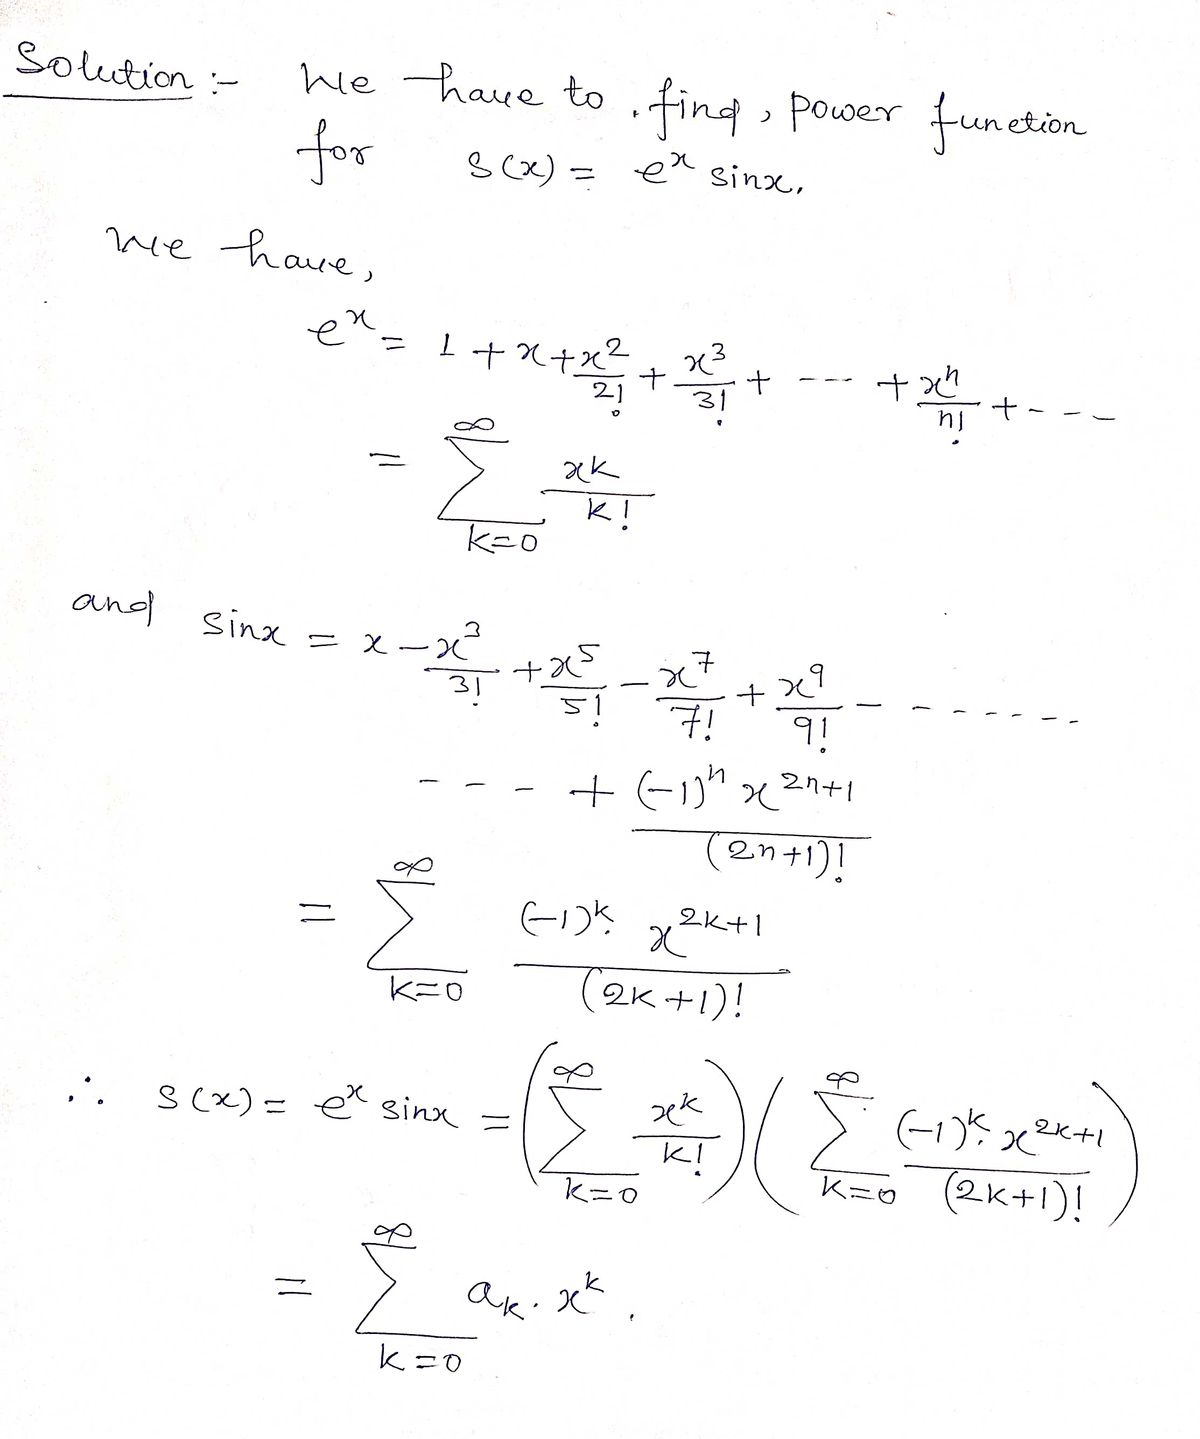 Solution :- We have to find, power function
for S(x) = e^x sinx.
We have,
e^x = 1 + x + x^2/2! + x^3/3! + --- + x^n/n! + ---
= ∑_{k=0}^{∞} x^k/k!
and sinx = x - x^3/3! + x^5/5! - x^7/7! + x^9/9! - ------
--- + (-1)^n x^{2n+1}/(2n+1)!
= ∑_{k=0}^{∞} (-1)^k. x^{2k+1}/(2k+1)!
∴ S(x) = e^x sinx = (∑_{k=0}^{∞} x^k/k!) (∑_{k=0}^{∞} (-1)^k. x^{2k+1}/(2k+1)!)
= ∑_{k=0}^{∞} a_k . x^k .